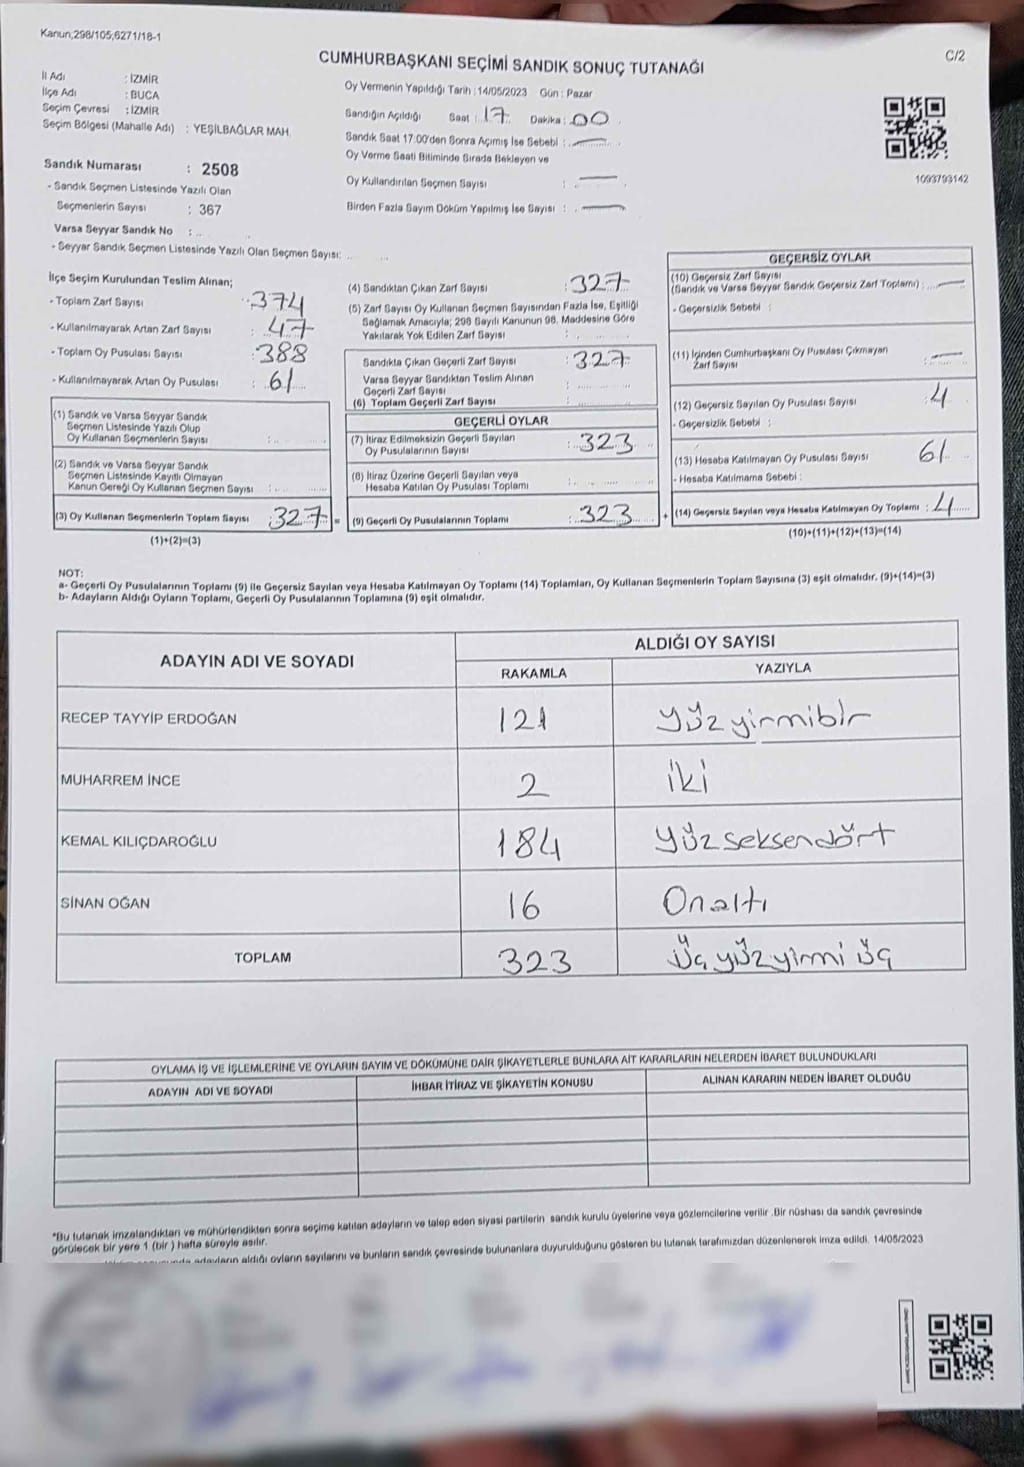 Kanun;298/105;6271/18-1
C/2
CUMHURBAŞKANI SEÇİMİ SANDIK SONUÇ TUTANAĞI
İl Adı : İZMİR
İlçe Adı : BUCA
Seçim Çevresi : İZMİR
Seçim Bölgesi (Mahalle Adı) : YEŞİLBAĞLAR MAH.
Oy Vermenin Yapıldığı Tarih :14/05/2023 Gün : Pazar
Sandığın Açıldığı Saat : 17 Dakika : 00
Sandık Saat 17:00'den Sonra Açımış İse Sebebi : —
Oy Verme Saati Bitiminde Sırada Bekleyen ve
Oy Kullandırılan Seçmen Sayısı : —
Birden Fazla Sayım Döküm Yapılmış İse Sayısı : —
1093793142
Sandık Numarası : 2508
- Sandık Seçmen Listesinde Yazılı Olan
Seçmenlerin Sayısı : 367
Varsa Seyyar Sandık No :
- Seyyar Sandık Seçmen Listesinde Yazılı Olan Seçmen Sayısı:
İlçe Seçim Kurulundan Teslim Alınan;
- Toplam Zarf Sayısı : 374
- Kullanılmayarak Artan Zarf Sayısı : 47
- Toplam Oy Pusulası Sayısı : 388
- Kullanılmayarak Artan Oy Pusulası : 61
(1) Sandık ve Varsa Seyyar Sandık
Seçmen Listesinde Yazılı Olup
Oy Kullanan Seçmenlerin Sayısı :
(2) Sandık ve Varsa Seyyar Sandık
Seçmen Listesinde Kayıtlı Olmayan
Kanun Gereği Oy Kullanan Seçmen Sayısı :
(3) Oy Kullanan Seçmenlerin Toplam Sayısı : 327 =
(1)+(2)=(3)
(4) Sandıktan Çıkan Zarf Sayısı : 327
(5) Zarf Sayısı Oy Kullanan Seçmen Sayısından Fazla İse, Eşitliği
Sağlamak Amacıyla; 298 Sayılı Kanunun 98. Maddesine Göre
Yakılarak Yok Edilen Zarf Sayısı :
Sandıkta Çıkan Geçerli Zarf Sayısı : 327
Varsa Seyyar Sandıktan Teslim Alınan
Geçerli Zarf Sayısı :
(6) Toplam Geçerli Zarf Sayısı :
GEÇERLİ OYLAR
(7) İtiraz Edilmeksizin Geçerli Sayılan
Oy Pusulalarının Sayısı : 323
(8) İtiraz Üzerine Geçerli Sayılan veya
Hesaba Katılan Oy Pusulası Toplamı :
(9) Geçerli Oy Pusulalarının Toplamı : 323 +
GEÇERSİZ OYLAR
(10) Geçersiz Zarf Sayısı
(Sandık ve Varsa Seyyar Sandık Geçersiz Zarf Toplamı) : —
- Geçersizlik Sebebi :
(11) İçinden Cumhurbaşkanı Oy Pusulası Çıkmayan
Zarf Sayısı : —
(12) Geçersiz Sayılan Oy Pusulası Sayısı : 4
- Geçersizlik Sebebi :
(13) Hesaba Katılmayan Oy Pusulası Sayısı : 61
- Hesaba Katılmama Sebebi :
(14) Geçersiz Sayılan veya Hesaba Katılmayan Oy Toplamı : 4
(10)+(11)+(12)+(13)=(14)
NOT:
a- Geçerli Oy Pusulalarının Toplamı (9) ile Geçersiz Sayılan veya Hesaba Katılmayan Oy Toplamı (14) Toplamları, Oy Kullanan Seçmenlerin Toplam Sayısına (3) eşit olmalıdır. (9)+(14)=(3)
b- Adayların Aldığı Oyların Toplamı, Geçerli Oy Pusulalarının Toplamına (9) eşit olmalıdır.
ADAYIN ADI VE SOYADI ALDIĞI OY SAYISI
RAKAMLA YAZIYLA
RECEP TAYYİP ERDOĞAN 121 yüzyirmibir
MUHARREM İNCE 2 iki
KEMAL KILIÇDAROĞLU 184 yüzseksendört
SİNAN OĞAN 16 Onaltı
TOPLAM 323 Üçyüzyirmi üç
OYLAMA İŞ VE İŞLEMLERİNE VE OYLARIN SAYIM VE DÖKÜMÜNE DAİR ŞİKAYETLERLE BUNLARA AİT KARARLARIN NELERDEN İBARET BULUNDUKLARI
ADAYIN ADI VE SOYADI İHBAR İTİRAZ VE ŞİKAYETİN KONUSU ALINAN KARARIN NEDEN İBARET OLDUĞU
*Bu tutanak imzalandıktan ve mühürlendikten sonra seçime katılan adayların ve talep eden siyasi partilerin sandık kurulu üyelerine veya gözlemcilerine verilir .Bir nüshası da sandık çevresinde
görülecek bir yere 1 (bir ) hafta süreyle asılır.
adayların aldığı oyların sayılarını ve bunların sandık çevresinde bulunanlara duyurulduğunu gösteren bu tutanak tarafımızdan düzenlenerek imza edildi. 14/05/2023